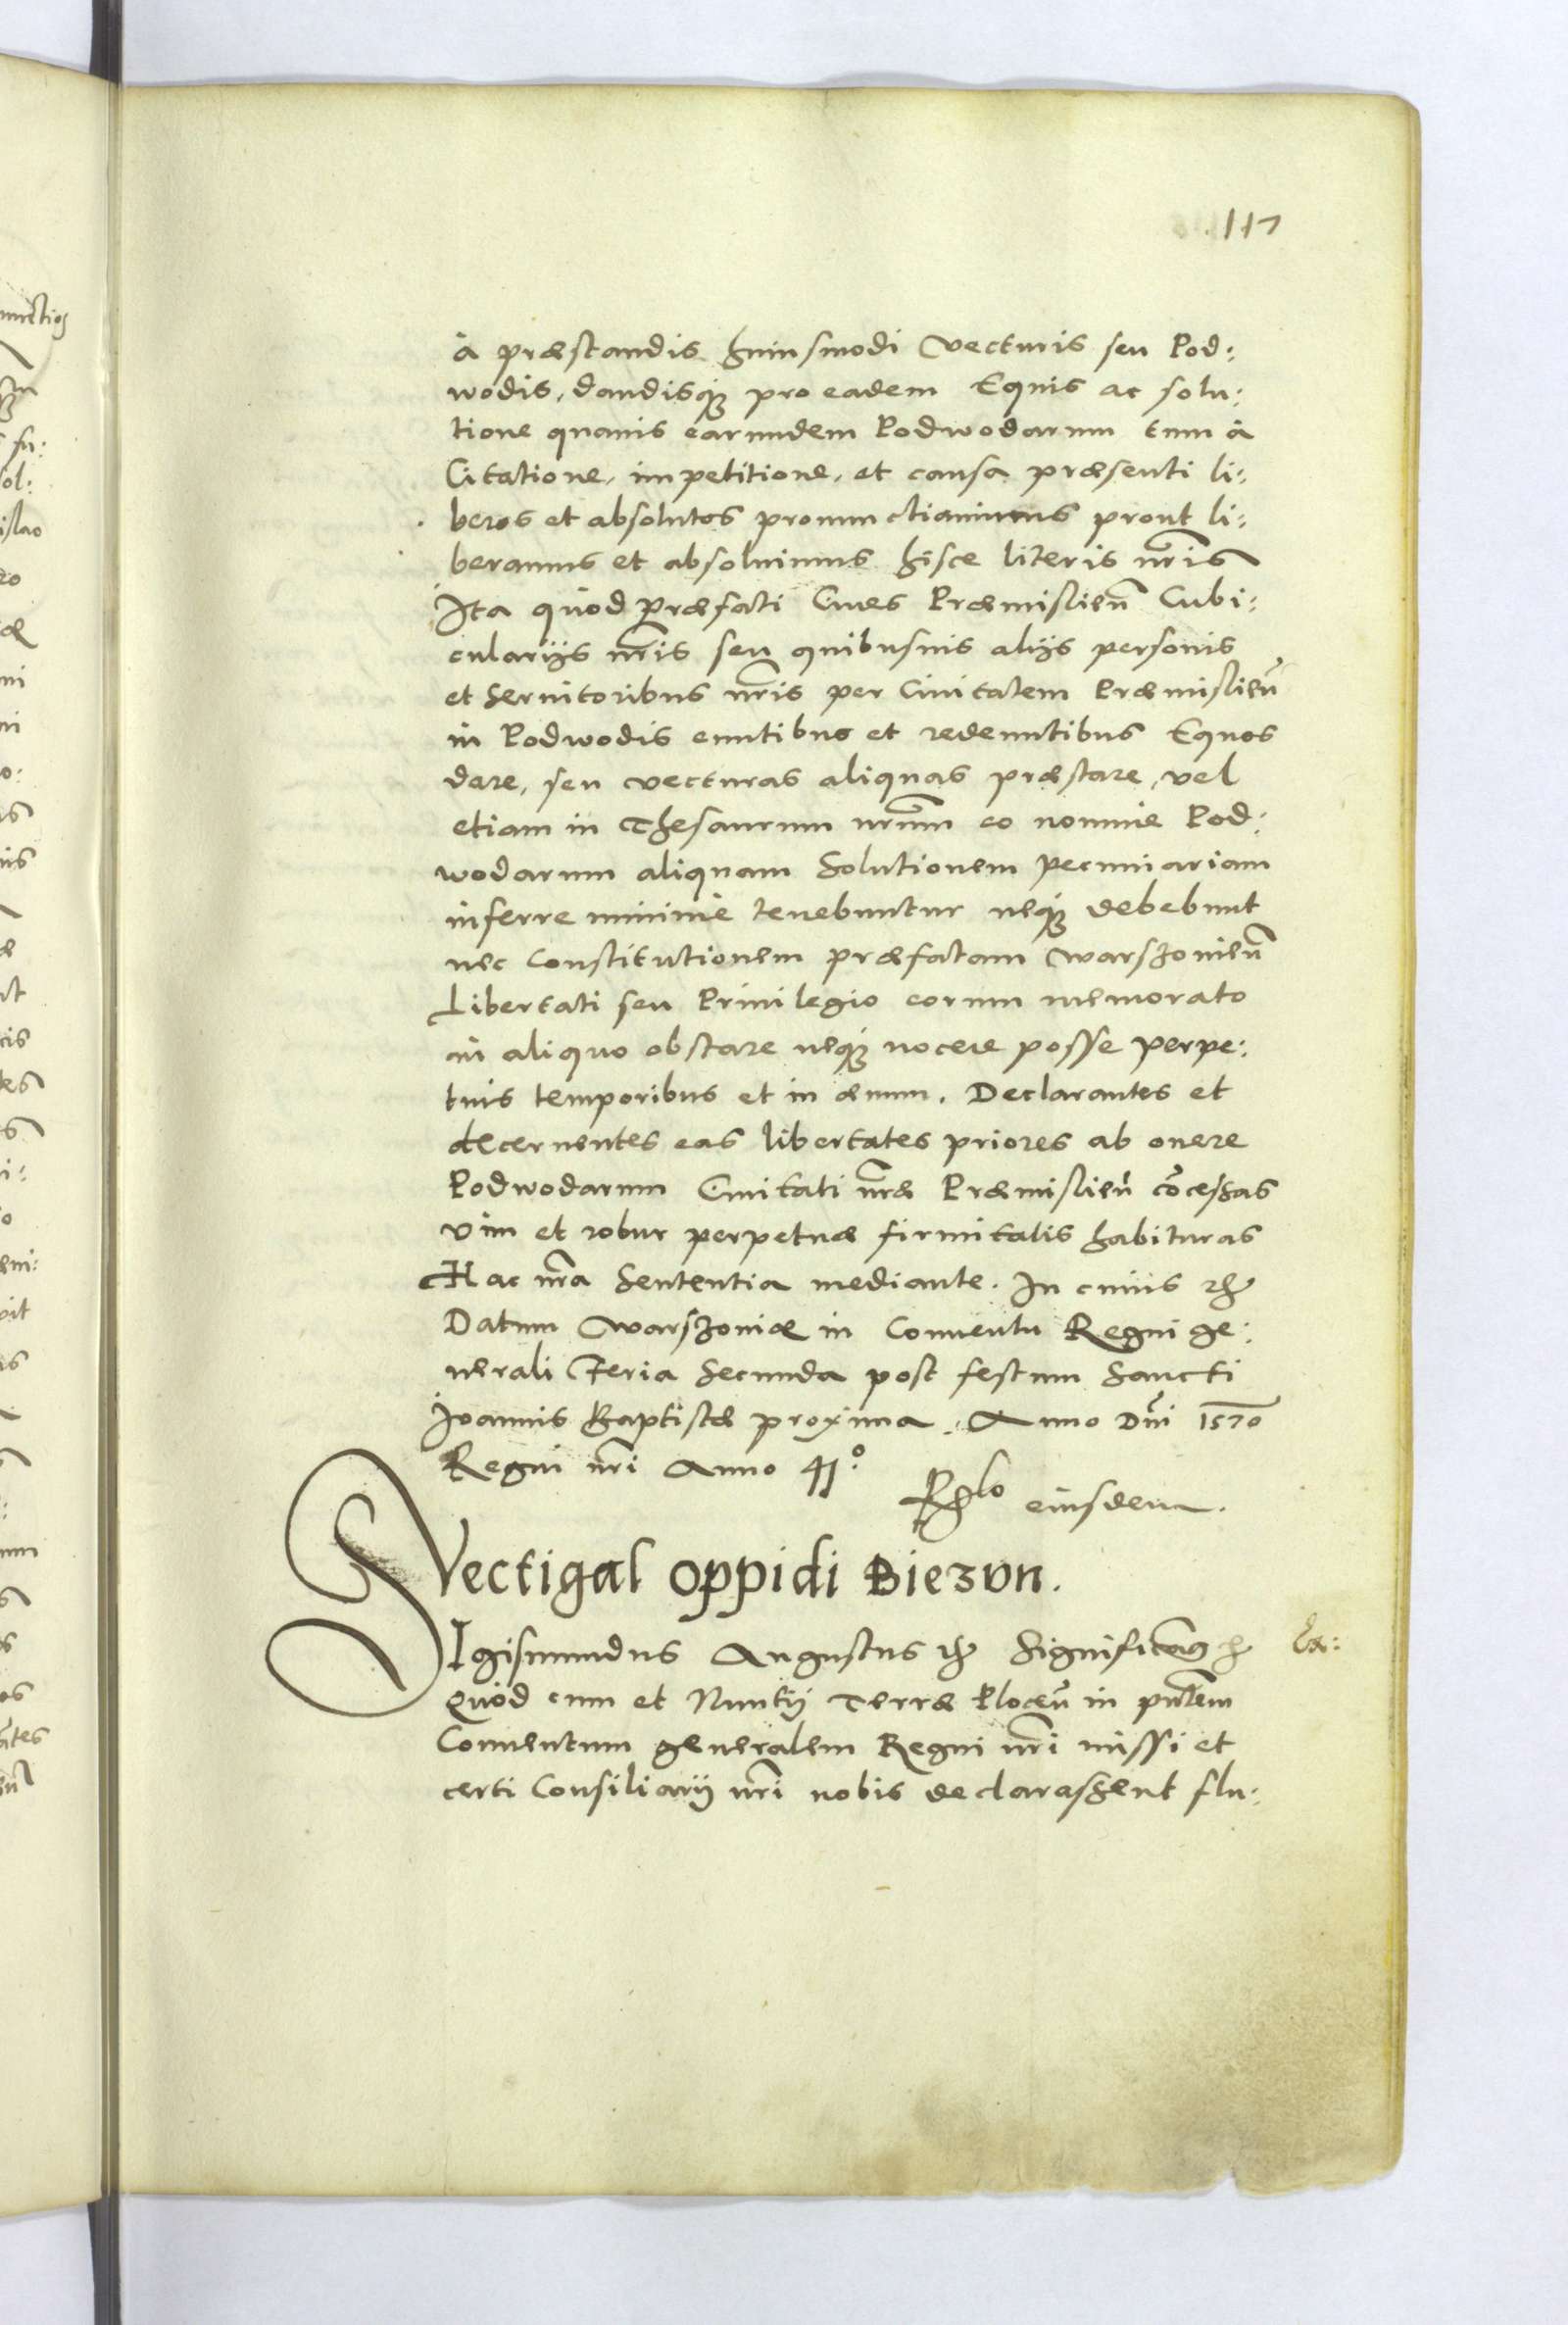 117
à præstandis huiusmodi vecturis seu Pod:
wodis, dandisq3 pro eadem Equis ac solu:
tione quauis earundem Podwodarum tum à
Citatione, impetitione, et causa præsenti li:
beros et absolutos pronunctiauimus prout li:
beramus et absoluimus hisce literis nr̃is
Ita quòd præfati Ciues Præmislien̄ Cubi:
cularijs nr̃is seu quibusuis alijs personis
et Seruitoribus nr̃is per Ciuitatem Præmislien̄
in Podwodis euntibus et redeuntibus Equos
dare, seu vecturas aliquas præstare, vel
etiam in Thesaurum nr̃um eo nomine Pod:
wodarum aliquam Solutionem pecuniariam
inferre minime tenebuntur neq3 debebunt
nec Constitutionem præfatam Warszouien̄
Libertati seu Priuilegio eorum memorato
in aliquo obstare neq3 nocere posse perpe:
tuis temporibus et in æuum. Declarantes et
decernentes eas libertates priores ab onere
Podwodarum Ciuitati nr̃æ Præmislien̄ cōcessas
vim et robur perpetuæ firmitatis habituras
Hac nr̃a Sententia mediante. In cuius rei
Datum Warszouiæ in Conuentu Regni ge:
nerali Feria Secunda post festum Sancti
Joannis Baptistæ proxima. Anno Dn̄i 1570
Regni nr̃i Anno 41.º
R̃elo eiusdem.
Vectigal oppidi Biezvn.
SIgismundus Augustus etc Significamus etc
Quòd cum et Nuntij Terræ Plocen̄ in pn̄tem
Conuentum generalem Regni nr̃i missi et
certi Consiliarij nr̃i nobis declarassent flu: